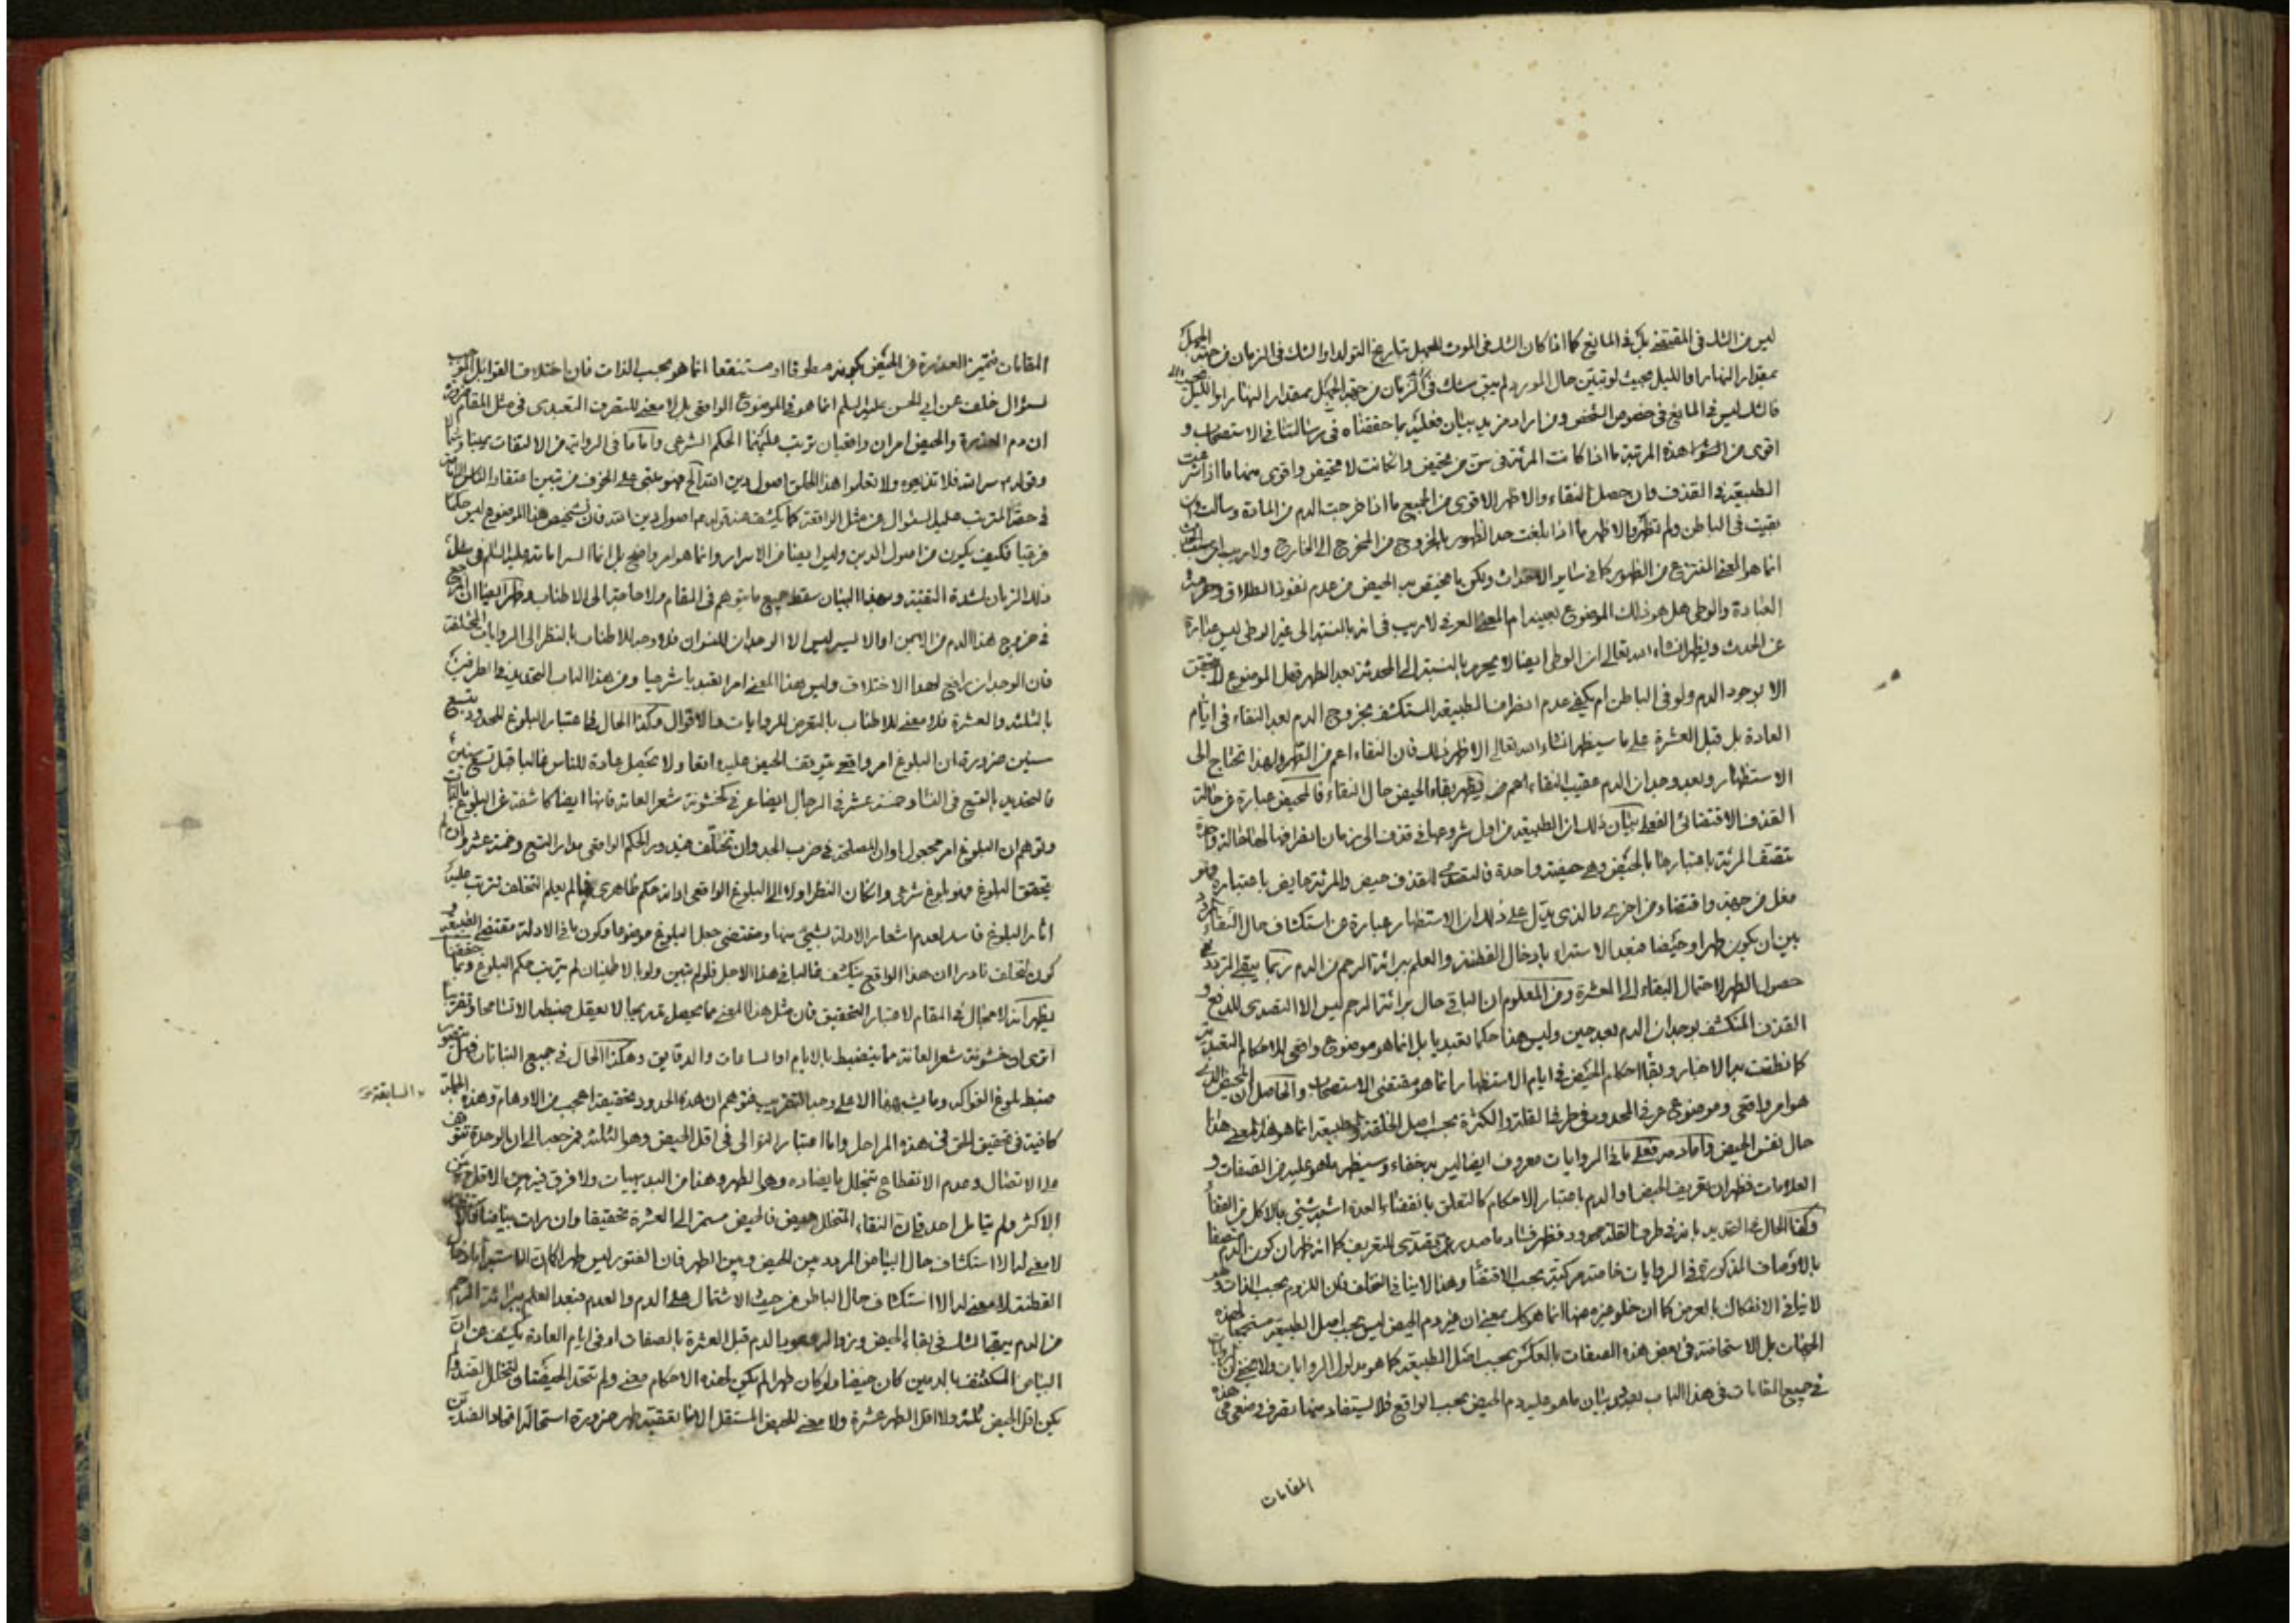 ليس من الشك في المقتضي بل في المانع كما اذا كان الشك في الموت للجهل بتاريخ التولد او الشك في الزمان من جهة الجهل
بمقدار النهار او الليل بحيث لو تبين حال المورد لم يبق شك في الزمان من جهة الجهل بمقدار النهار او الليل
فالشك ليس في المانع في خصوص الشخص ومن اراد مزيد بيان فعليه بما حققناه في رسالتنا في الاستصحاب و
اقوى من هذه المرتبة ما اذا كانت المرئة في سن من تحيض وان كانت لا تحيض واقوى منهما ما اذا
الطبيعة في القذف وان حصل النقاء والاظهر الاقوى من الجميع ما اذا خرجت الدم من المادة وسالت وان
بقيت في الباطن ولم تظهر والاظهر ما اذا بلغت حد الظهور بالخروج من المخرج الى الخارج ولا ريب ان
انما هو المعنى المنتزع من الظهور كما في سائر الاحداث ولكن ما يختص به الحيض من عدم نفوذ الطلاق وحرمة
العبادة والوطي هل هو ذلك الموضوع بعينه ام المعنى العرفي لا ريب في انه بالنسبة الى غير الوطي ليس عبارة
عن الحدث ويظهر انشاء الله تعالى ان الوطي ايضا لا يحرم بالنسبة الى المحدثة بعد الطهر فهل الموضوع لا يتحقق
الا بوجود الدم ولو في الباطن ام يكفي عدم انصراف الطبيعة المستكشف بخروج الدم بعد النقاء في ايام
العادة بل قبل العشرة على ما سيظهر انشاء الله تعالى الاظهر ذلك فان النقاء اعم من الطهر ولهذا تحتاج الى
الاستظهار وبعد وجدان الدم عقيب النقاء يظهر بقاء الحيض حال النقاء فالحيض عبارة عن حالة
القذف الاقتضائي الفعلي بيان ذلك ان الطبيعة من اول شروعها في قذف الى زمان انصرافها لها حالة واحدة
تتصف المرئة باعتبارها بالحيض وهي حيضة واحدة فالتصدي للقذف حيض والمرئة حايض باعتباره فهو
فعل من جهة واقتضاء من اخرى والذي يدل على ذلك ان الاستظهار عبارة عن استكشاف حال النقاء المردد
بين ان يكون طهرا وحيضا فبعد الاستبراء بادخال القطنة والعلم ببرائة الرحم من الدم ربما يبقى التردد في
حصول الطهر لاحتمال البقاء الى العشرة ومن المعلوم ان الباقي حال برائة الرحم ليس الا التصدي للدفع و
القذف المنكشف بوجدان الدم بعد حين وليس هذا حكما تعبديا بل انما هو موضوع واقعي للاحكام التعبدية
كما نطقت به الاخبار وبقاء احكام الحيض في ايام الاستظهار انما هو مقتضى الاستصحاب والحاصل ان الحيض الذي
هو امر واقعي وموضوع عرفي المحدود في طرفي القلة والكثرة بحسب اصل الخلقة والطبيعة انما هو هذا المعنى هذا
حال نفس الحيض واما دمه فعلى ما في الروايات معروف ايضا ليس به خفاء وسيظهر ما هو عليه من الصفات و
العلامات فظهر ان تعريف الحيض او الدم باعتبار الاحكام كالتعلق بانقضاء العدة اشبه شيئ بالاكل من القفا
وكذا الحال في التحديد بانه في طرف القلة محدود فظهر فساد ما صدر عمن تصدى للتعريف كما انه ظهر ان كون الدم متصفا
بالاوصاف المذكورة في الروايات خاصة مركبة بحسب الاقتضاء وهذا لا ينافي التخلف فان اللزوم بحسب الذات
لا ينافي الانفكاك بالعرض كما ان خلو غيره منها انما هو كك بمعنى ان غير دم الحيض ليس بحسب اصل الطبيعة مستجمعا لهذه
الجهات بل الاستحاضة في بعض هذه الصفات بالعكس بحسب اصل الطبيعة كما هو مدلول الروايات ولا يخفى ان
في جميع المقامات في هذا الباب بصدد بيان ما هو عليه دم الحيض بحسب الواقع فلا يستفاد منها تصرف في
المقامات
المقامات فتميز العذرة من الحيض بكونه مطوقا او مستنقعا انما هو بحسب الذات فان اختلاف القوابل الموجب
لسؤال خلف عن ابي الحسن عليه السلم انما هو في الموضوع الواقعي بل لا معنى للتصرف التعبدي في مثل المقام ضرورة
ان دم العذرة والحيض امران واقعيان ترتب عليهما الحكم الشرعي واما ما في الرواية من الالتفات يمينا وشمالا
وقوله سر الله فلا تذيعوه ولا تعلموا هذا الخلق اصول دين الله الخ فهو مبتني على الخوف من تبين اعتقاد الناس
في حقه المترتب على السؤال عن مثل الواقعة كما يكشف عنه قوله اصول دين الله فان تشخيص هذا الموضوع ليس حكما
فرعيا فكيف يكون من اصول الدين وليس ايضا من الاسرار وانما هو امر واضح بل انما السر امامته عليه السلم في مثل
ذلك الزمان لشدة التقية وبهذا البيان سقط جميع ما يتوهم في المقام ولا حاجة الى الاطناب وظهر ايضا ان المرجع
في خروج هذا الدم من الايمن او الايسر ليس الا الوجدان للنسوان فلا وجه للاطناب بالنظر الى الروايات المختلفة
فان الوجدان رافع لهذا الاختلاف وليس هذا المعنى امرا تعبديا شرعيا ومن هذا الباب التحديد في الطرفين
بالثلثة والعشرة فلا معنى للاطناب بالتعرض للروايات والاقوال وكذا الحال في اعتبار البلوغ المحدود بتسع
سنين ضرورة ان البلوغ امر واقعي يتوقف الحيض عليه واقعا ولا يحصل عادة للناس غالبا قبل تسع سنين
فالتحديد بالتسع في النساء وخمسة عشر في الرجال ايضا عرفي كخشونة شعر العانة فانها ايضا كاشفة عن البلوغ بالذات
وتوهم ان البلوغ امر مجعول او ان المصلحة في ضرب الحد وان تخلف فيدور الحكم الواقعي مدار التسع وخمسة عشر وان لم
يتحقق البلوغ فهو بلوغ شرعي وان كان النظر اولا الى البلوغ الواقعي او انه حكم ظاهري فما لم يعلم التخلف تترتب عليه
اثار البلوغ فاسد لعدم اشعار الادلة بشيئ منها ومقتضى جعل البلوغ موضوعا وكون ما في الادلة مقتضى الطبيعة و
كون التخلف نادرا ان هذا الواقع ينكشف غالبا في هذا الاجل فلو لم يتبين ولو بالاطمينان لم يترتب حكم البلوغ وبما حققنا
يظهر انه لا مجال في المقام لاعتبار التحقيق فان مثل هذا المعنى مما يحصل تدريجا لا يعقل ضبطه الا تسامحا وتقريبا
اترى ان خشونة شعر العانة مما ينضبط بالايام او الساعات والدقايق وهكذا الحال في جميع النباتات فهل يتصور
ضبط بلوغ الفواكه وما يشبهها الا على وجه التقريب فتوهم ان هذه الحدود تحقيقية اعجب من الاوهام وهذه الجملة
السابقة
كافية في تحقيق الحق في هذه المراحل واما اعتبار التوالي في اقل الحيض وهو الثلثة فمرجعه الى ان الوحدة تتوقف
على الاتصال وعدم الانقطاع بتخلل ما يضاده وهو الطهر وهذا من البديهيات ولا فرق فيه بين الاقل
الاكثر ولم يقابل احد فان النقاء المتخلل حيض فالحيض مستمر الى العشرة تحقيقا وان رات بياضا
لا معنى له الا استكشاف حال البياض المردد بين الحيض وبين الطهر فان الفتور ليس طهرا كما ان الاستبراء بادخال
القطنة لا معنى له الا استكشاف حال الباطن من حيث الاشتمال على الدم والعدم فبعد العلم ببرائة الرحم
من الدم يبقى الشك في بقاء الحيض وزواله بالدم قبل العشرة بالصفات او في ايام العادة يكشف عن ان
البياض المكتنف بالدمين كان حيضا ولو كان طهرا لم يكن لهذه الاحكام معنى ولم تتحد الحيضتا لتخلل الضد ولم
يكن اقل الحيض ثلثة ولا اقل الطهر عشرة ولا معنى للحيض المستقل الا ما تعقبه طهر ضرورة استحالة اتحاد الضدين